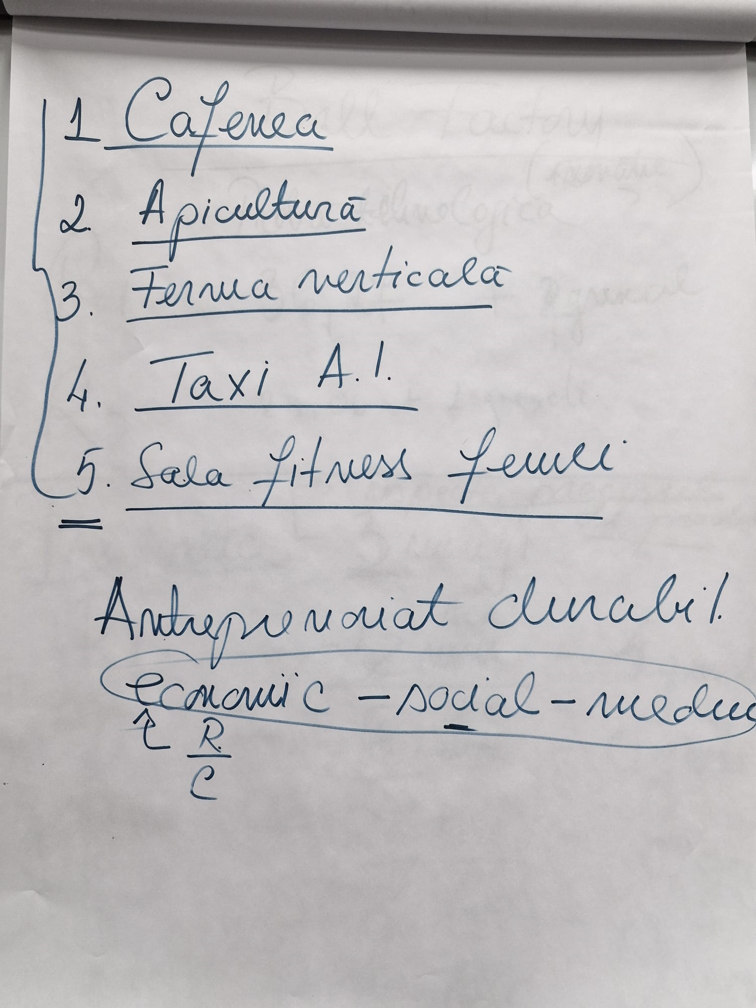 1 Cafenea
2. Apicultură
3. Ferma verticală
4. Taxi A.I.
5. Sala fitness femei
Antreprenoriat durabil.
economic - social - mediu
R
C